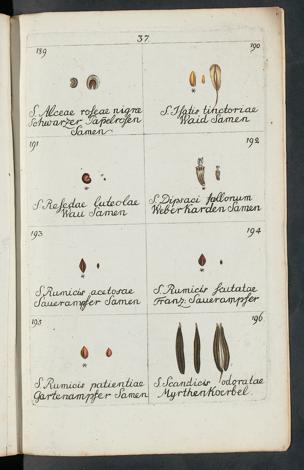 37.
189
S. Alceae roseae nigrae
Schwarzer Papelrosen
Samen
190
S. Isatis tinctoriae
Waid Samen
191
S. Resedae luteolae
Wau Samen
192
S. Dipsaci fullonum
Weberkarden Samen
193
S. Rumicis acetosae
Sauerampfer Samen
194
S. Rumicis scutatae
Franz. Sauerampffer
195
S. Rumicis patientiae
Gartenampfer Samen
196
S. Scandicis odoratae
Myrthen Koerbel.